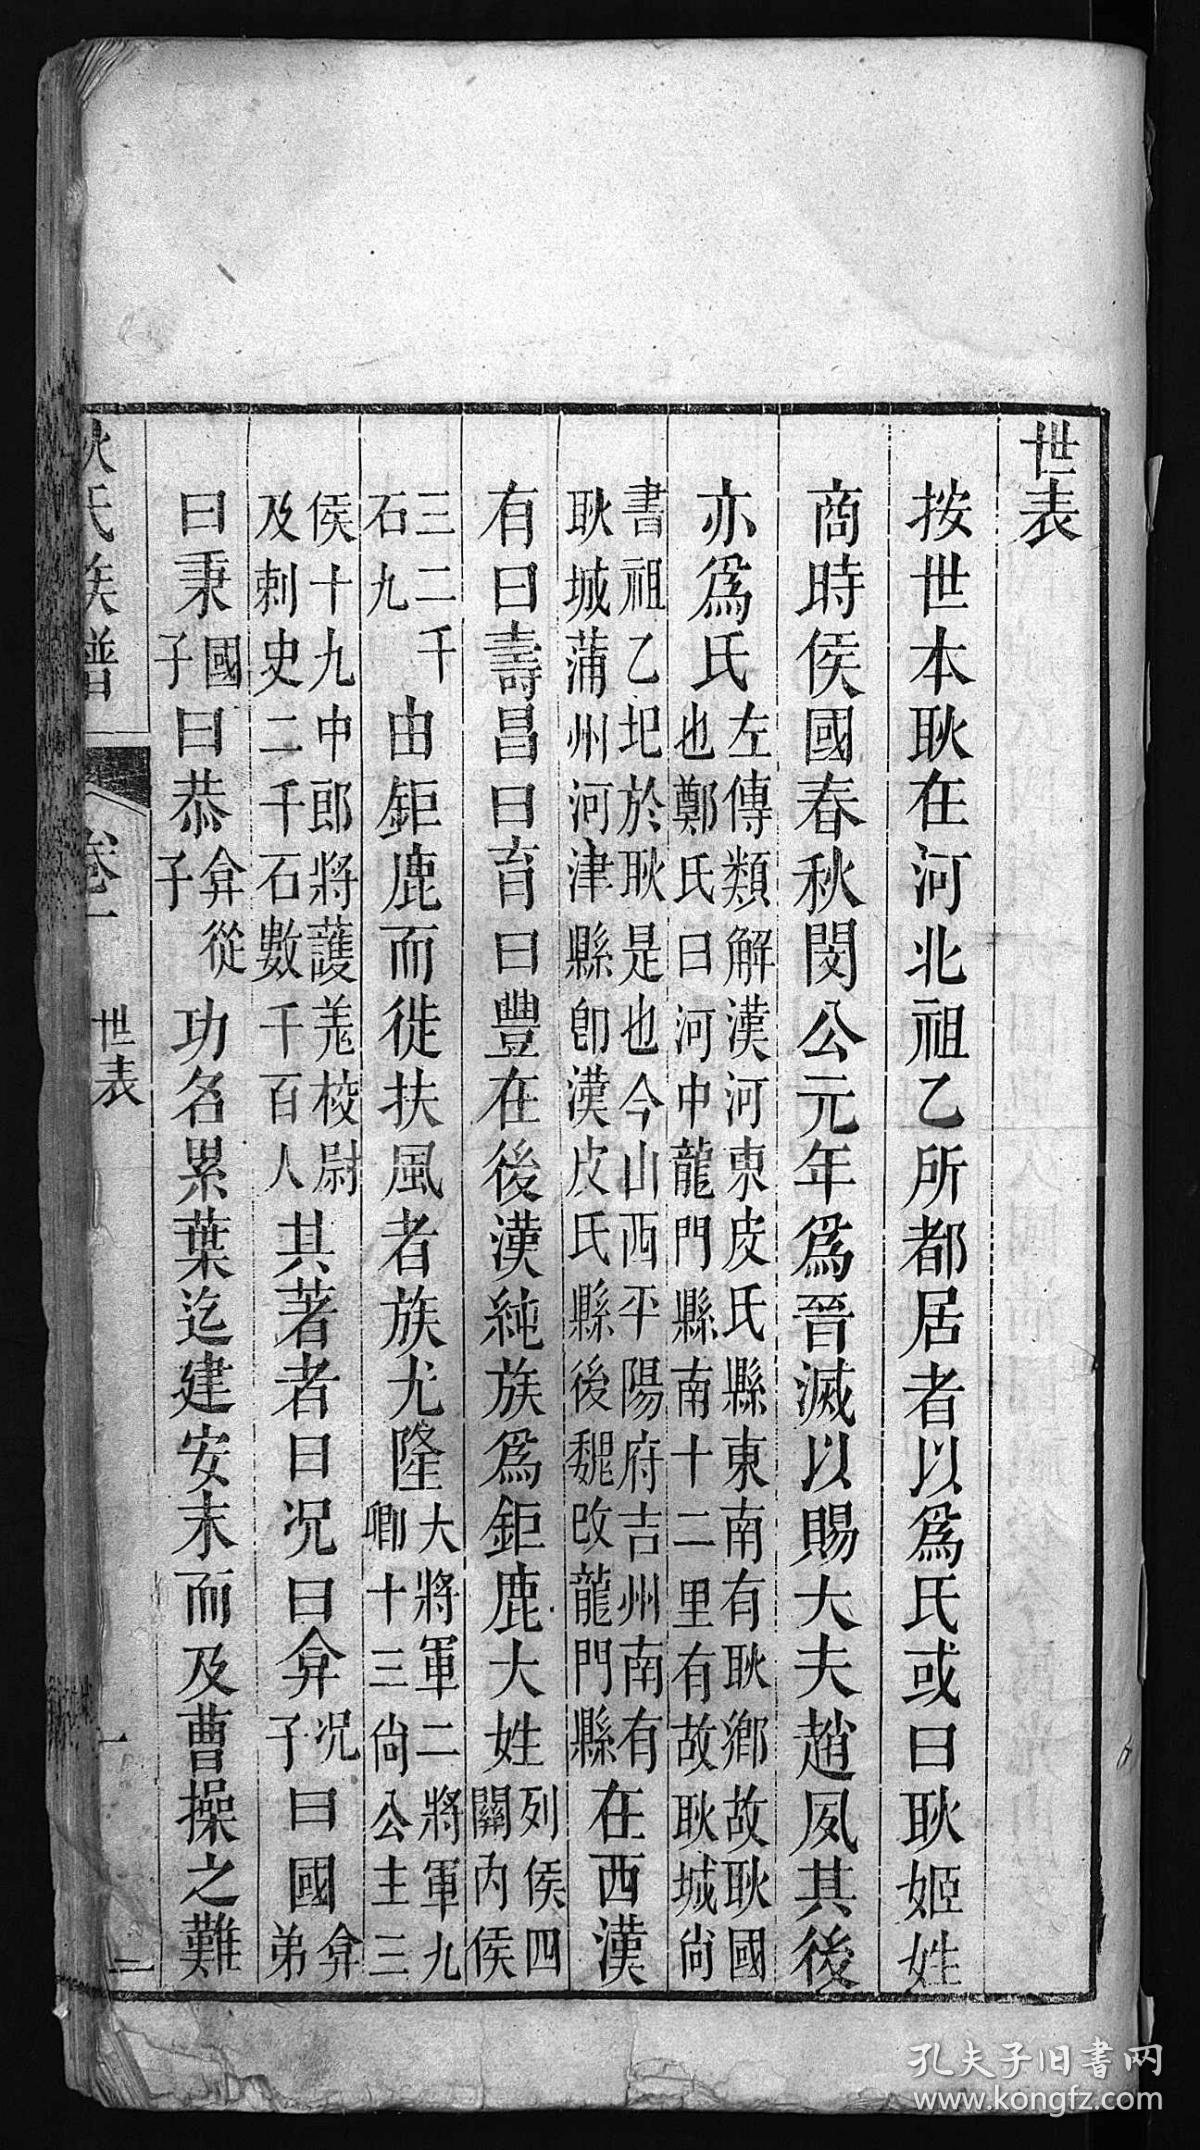 世表
按世本耿在河北祖乙所都居者以爲氏或曰耿姬姓
商時侯國春秋閔公元年爲晉滅以賜大夫趙夙其後
亦爲氏左傳類解漢河東皮氏縣東南有耿鄉故耿國
也鄭氏曰河中龍門縣南十二里有故耿城尙
書祖乙圯於耿是也今山西平陽府吉州南有
耿城蒲州河津縣卽漢皮氏縣後魏改龍門縣在西漢
有曰壽昌曰育曰豐在後漢純族爲鉅鹿大姓列侯四
關內侯
三二千
石九由鉅鹿而徙扶風者族尤隆大將軍二將軍九
卿十三尙公主三
侯十九中郎將護羗校尉
及刺史二千石數千百人其著者曰况曰弇况子曰國弇弟
曰秉國子曰恭弇從子功名累葉迄建安末而及曹操之難
耿氏族譜 卷一 世表 一 二
孔夫子旧書网
www.kongfz.com